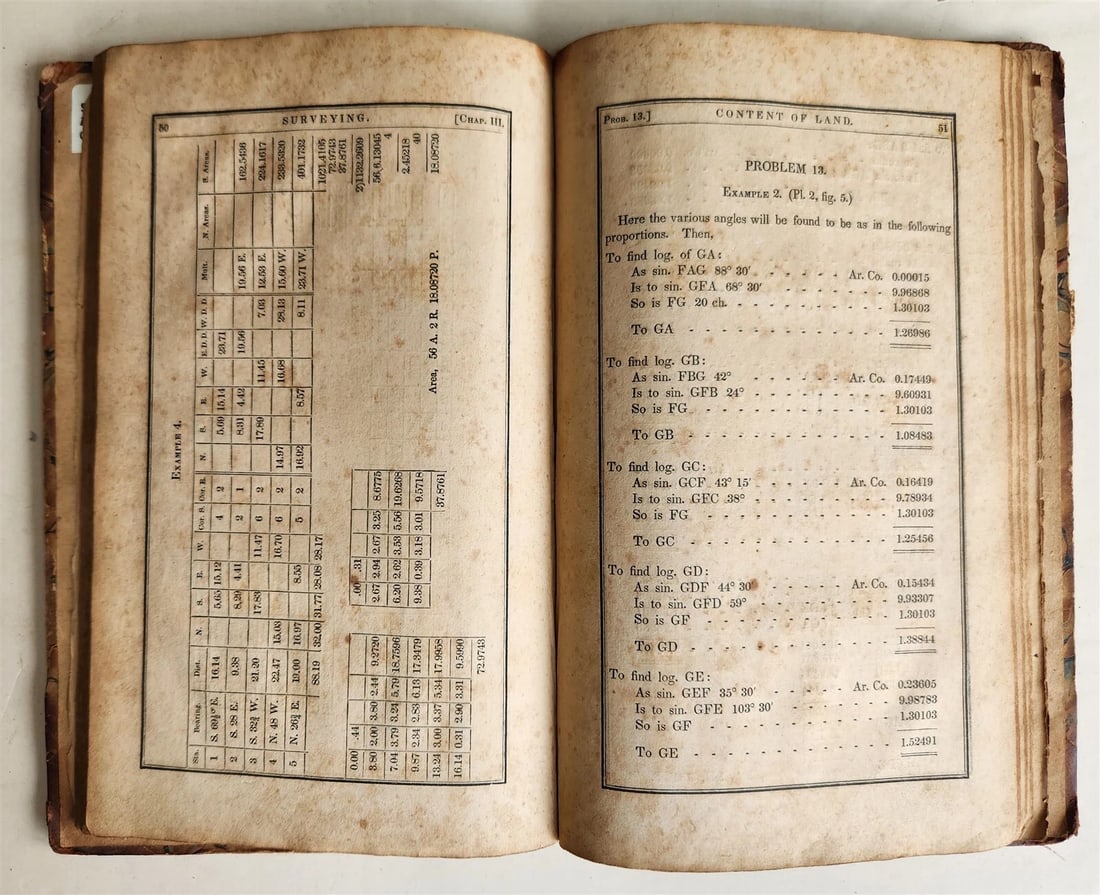 50 SURVEYING. [CHAP. III.
EXAMPLE 4.
Sta. Bearing. Dist. N. S. E. W. Cor. S. Cor. E. N. S. E. W. E. D. D. W. D. D. Mult. N. Areas. S. Areas.
1 S. 69½° E. 16.14 5.65 15.12 4 2 5.69 15.14 23.71
2 S. 28 E. 9.38 8.29 4.41 2 1 8.31 4.42 19.56 19.56 E. 162.5436
3 S. 32¾ W. 21.20 17.83 11.47 6 2 17.89 11.45 7.03 12.53 E. 224.1617
4 N. 48 W. 22.47 15.03 16.70 6 2 14.97 16.68 28.13 15.60 W. 233.5320
5 N. 26¾ E. 19.00 16.97 8.55 5 2 16.92 8.57 8.11 23.71 W. 401.1732
88.19 32.00 31.77 28.08 28.17 1021.4105
72.9743
37.8761
2)1132.2609
56,6.13045
4
2.45218
40
18.08720
Area, 56 A. 2 R. 18.08720 P.
0.00 .44
3.80 2.00 3.80 2.44 9.2720
7.04 3.79 3.24 5.79 18.7596
9.87 2.34 2.83 6.13 17.3479
13.24 3.00 3.37 5.34 17.9958
16.14 0.31 2.90 3.31 9.5990
72.9743
.00 .31
2.67 2.94 2.67 3.25 8.6775
6.20 2.62 3.53 5.56 19.6268
9.38 0.39 3.18 3.01 9.5718
37.8761
PROB. 13.] CONTENT OF LAND. 51
PROBLEM 13.
EXAMPLE 2. (Pl. 2, fig. 5.)
Here the various angles will be found to be as in the following
proportions. Then,
To find log. of GA:
As sin. FAG 88° 30′ - - - - - Ar. Co. 0.00015
Is to sin. GFA 68° 30′ - - - - - - - - 9.96868
So is FG 20 ch. - - - - - - - - - - 1.30103
To GA - - - - - - - - - - - - 1.26986
To find log. GB:
As sin. FBG 42° - - - - - - Ar. Co. 0.17449
Is to sin. GFB 24° - - - - - - - - - 9.60931
So is FG - - - - - - - - - - - - 1.30103
To GB - - - - - - - - - - - - 1.08483
To find log. GC:
As sin. GCF 43° 15′ - - - - - Ar. Co. 0.16419
Is to sin. GFC 38° - - - - - - - - - 9.78934
So is FG - - - - - - - - - - - - 1.30103
To GC - - - - - - - - - - - - 1.25456
To find log. GD:
As sin. GDF 44° 30′ - - - - - Ar. Co. 0.15434
Is to sin. GFD 59° - - - - - - - - - 9.93307
So is GF - - - - - - - - - - - - 1.30103
To GD - - - - - - - - - - - - 1.38844
To find log. GE:
As sin. GEF 35° 30′ - - - - - Ar. Co. 0.23605
Is to sin. GFE 103° 30′ - - - - - - - 9.98783
So is GF - - - - - - - - - - - - 1.30103
To GE - - - - - - - - - - - - 1.52491